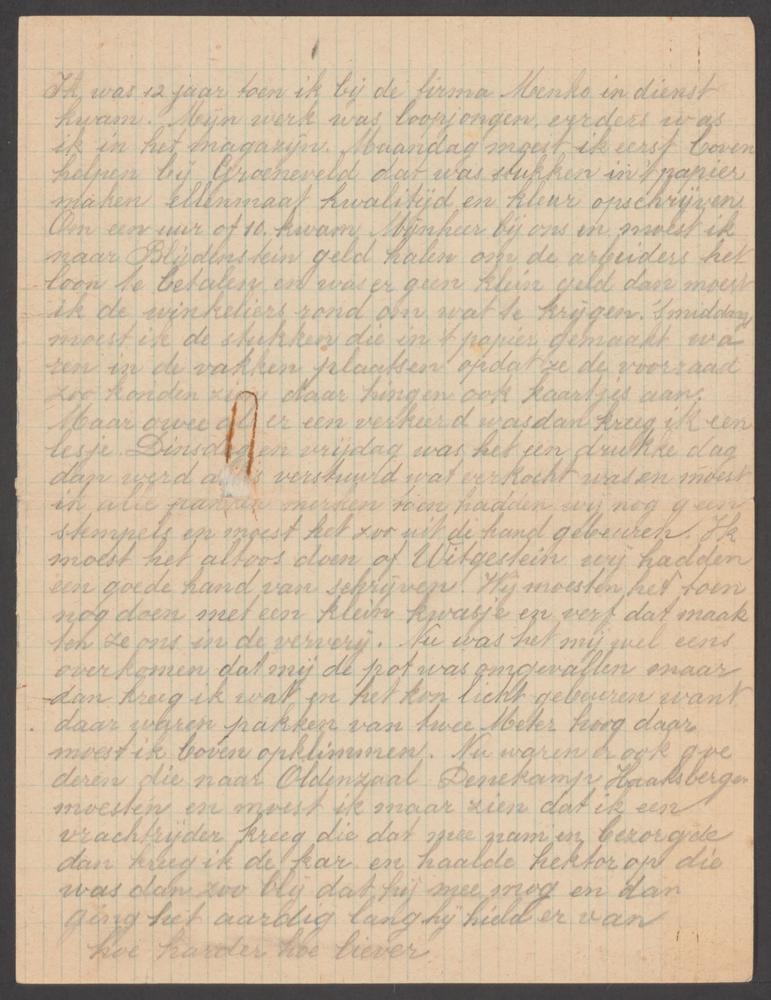 Ik was 12 jaar toen ik bij de firma Menko in dienst
kwam. Mijn werk was loopjongen, eerders was
ik in het magazijn. Maandag moest ik eerst boven
helpen bij Groeneveld dat was stukken in 't papier
maken ellenmaat kwalitijd en kleur opschrijven
Om een uur of 10. kwam Mijnheer bij ons en moest ik
naar Blijdenstein geld halen om de arbeiders het
loon te betalen en was er geen klein geld dan moest
ik de winkeliers rond om wat te krijgen. 's middags
moest ik de stukken die in 't papier gemaakt wa
ren in de vakken plaatsen opdat ze de voorraad
zoo konden zien daar hingen ook kaartjes aan.
Maar owee als er een verkeerd was dan kreeg ik een
lesje. Dinsdag en vrijdag was het een drukke dag
dan werd alles verstuurd wat verkocht was en moest
ik alle pakken merken toen hadden wij nog geen
stempels en moest het zoo uit de hand gebeuren. Ik
moest het altoos doen of Uitgestein wij hadden
een goede hand van schrijven. Wij moesten het toen
nog doen met een klein kwasje en verf dat maak
ten ze ons in de ververij. Nu was het mij wel eens
overkomen dat mij de pot was omgevallen maar
dan kreeg ik wat en het kon licht gebeuren want
daar waren pakken van twee Meter hoog daar
moest ik boven opklimmen. Nu waren er ook goe
deren die naar Oldenzaal Denekamp Haaksbergen
moesten en moest ik maar zien dat ik een
vrachtrijder kreeg die dat mee nam en bezorgde
dan kreeg ik de kar en haalde hektor op die
was dan zoo blij dat hij mee mog en dan
ging het aardig lang hij hield er van
hoe harder hoe liever